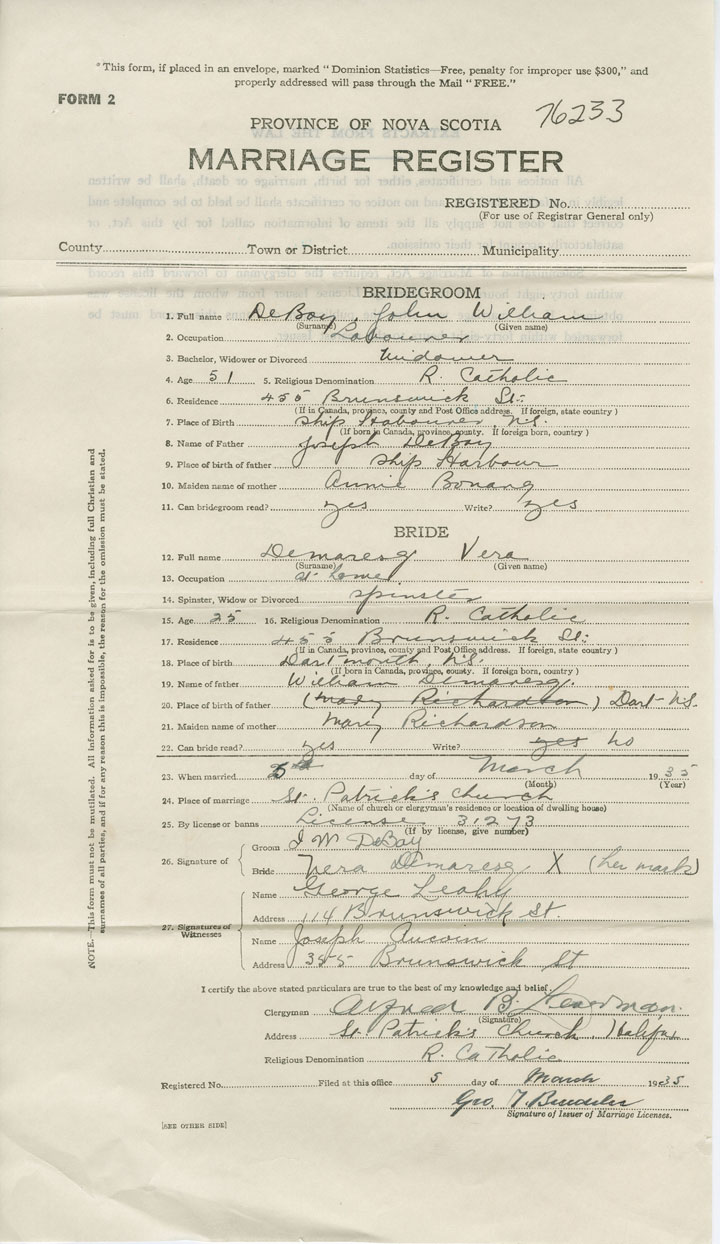 "This form, if placed in an envelope, marked "Dominion Statistics—Free, penalty for improper use $300," and
properly addressed will pass through the Mail "FREE."
FORM 2
76233
PROVINCE OF NOVA SCOTIA
MARRIAGE REGISTER
REGISTERED No.
(For use of Registrar General only)
County Town or District Municipality
BRIDEGROOM
1. Full name DeBay, John William
(Surname) (Given name)
2. Occupation Labourer
3. Bachelor, Widower or Divorced Widower
4. Age 51 5. Religious Denomination R. Catholic
6. Residence 455 Brunswick St.
(If in Canada, province, county and Post Office address. If foreign, state country)
7. Place of Birth Ship Harbour N.S.
(If born in Canada, province, county. If foreign born, country)
8. Name of Father Joseph DeBay
9. Place of birth of father Ship Harbour
10. Maiden name of mother Annie Bonang
11. Can bridegroom read? yes Write? yes
BRIDE
12. Full name Demaresq Vera
(Surname) (Given name)
13. Occupation at home
14. Spinster, Widow or Divorced spinster
15. Age 25 16. Religious Denomination R. Catholic
17. Residence 455 Brunswick St.
(If in Canada, province, county and Post Office address. If foreign, state country)
18. Place of birth Dartmouth, N.S.
(If born in Canada, province, county. If foreign born, country)
19. Name of father William Demaresq.
20. Place of birth of father (Mary Richardson) Dart- N.S.
21. Maiden name of mother Mary Richardson
22. Can bride read? yes Write? yes no
23. When married 5th day of March 1935
(Month) (Year)
24. Place of marriage St. Patrick's Church
(Name of church or clergyman's residence or location of dwelling house)
25. By license or banns License 31273
(If by license, give number)
26. Signature of
Groom J W DeBay
Bride Vera Demaresq X (her mark)
27. Signatures of Witnesses
Name George Leahy
Address 114 Brunswick St.
Name Joseph Aucoin
Address 355 Brunswick St
I certify the above stated particulars are true to the best of my knowledge and belief.
Clergyman Alfred B.
(Signature)
Address St. Patrick's Church, Halifax
Religious Denomination R. Catholic
Registered No. Filed at this office 5 day of March 1935
Geo. T.
Signature of Issuer of Marriage Licenses.
[SEE OTHER SIDE]
NOTE.—This form must not be mutilated. All information asked for is to be given, including full Christian and
surnames of all parties, and if for any reason this is impossible, the reason for the omission must be stated.